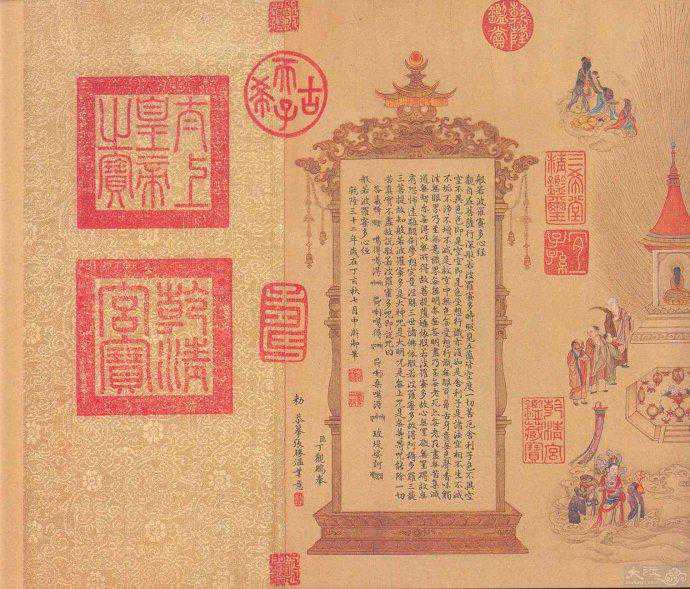 乾隆鑑賞
三希堂精鑑璽
宜子孫
乾清宮鑑藏寶
般若波羅蜜多心經
觀自在菩薩行深般若波羅蜜多時照見五蘊皆空度一切苦厄舍利子色不異空
空不異色色即是空空即是色受想行識亦復如是舍利子是諸法空相不生不滅
不垢不淨不增不減是故空中無色無受想行識無眼耳鼻舌身意無色聲香味觸
法無眼界乃至無意識界無無明亦無無明盡乃至無老死亦無老死盡無苦集滅
道無智亦無得以無所得故菩提薩埵依般若波羅蜜多故心無罣礙無罣礙故無
有恐怖遠離顛倒夢想究竟涅槃三世諸佛依般若波羅蜜多故得阿耨多羅三藐
三菩提故知般若波羅蜜多是大神咒是大明咒是無上咒是無等等咒能除一切
苦真實不虛故說般若波羅蜜多咒即說咒曰
般若波羅蜜多心經
乾隆三十二年歲在丁亥秋七月中澣御筆
臣丁觀鵬奉
勅恭摹張勝溫筆意
古希天子
壽
太上皇帝之寶
乾清宮寶